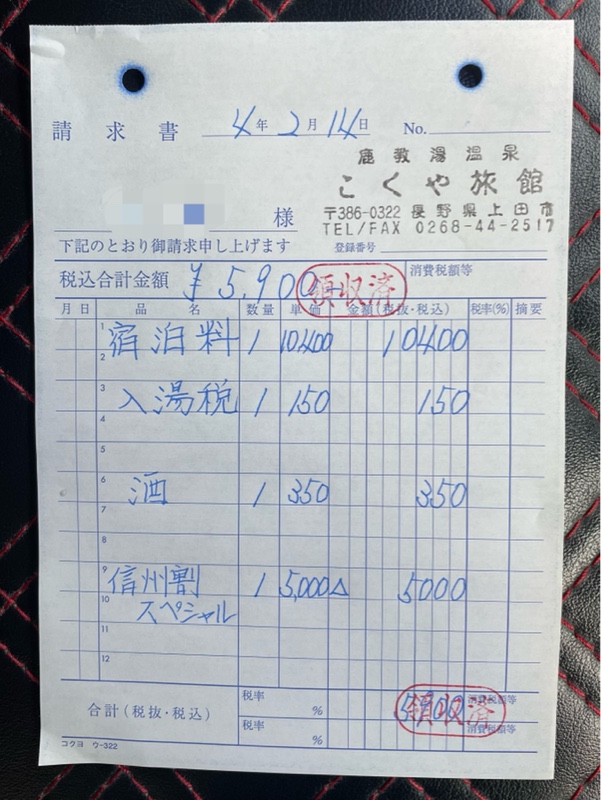 請求書 4年2月14日 No.
鹿教湯温泉
こくや旅館
〒386-0322 長野県上田市
TEL/FAX 0268-44-2517
様
登録番号
下記のとおり御請求申し上げます
税込合計金額 ¥5,900 領収済 消費税額等
月日 品名 数量 単価 金額(税抜・税込) 税率(%) 摘要
1 宿泊料 1 10400 10400
2
3 入湯税 1 150 150
4
5
6 酒 1 350 350
7
8
9 信州割 1 5,000 △ 5000
10 スペシャル
11
12
合計(税抜・税込) 税率 % 5900 領収済 消費税額等
税率 % 消費税額等
コクヨ ウ-322